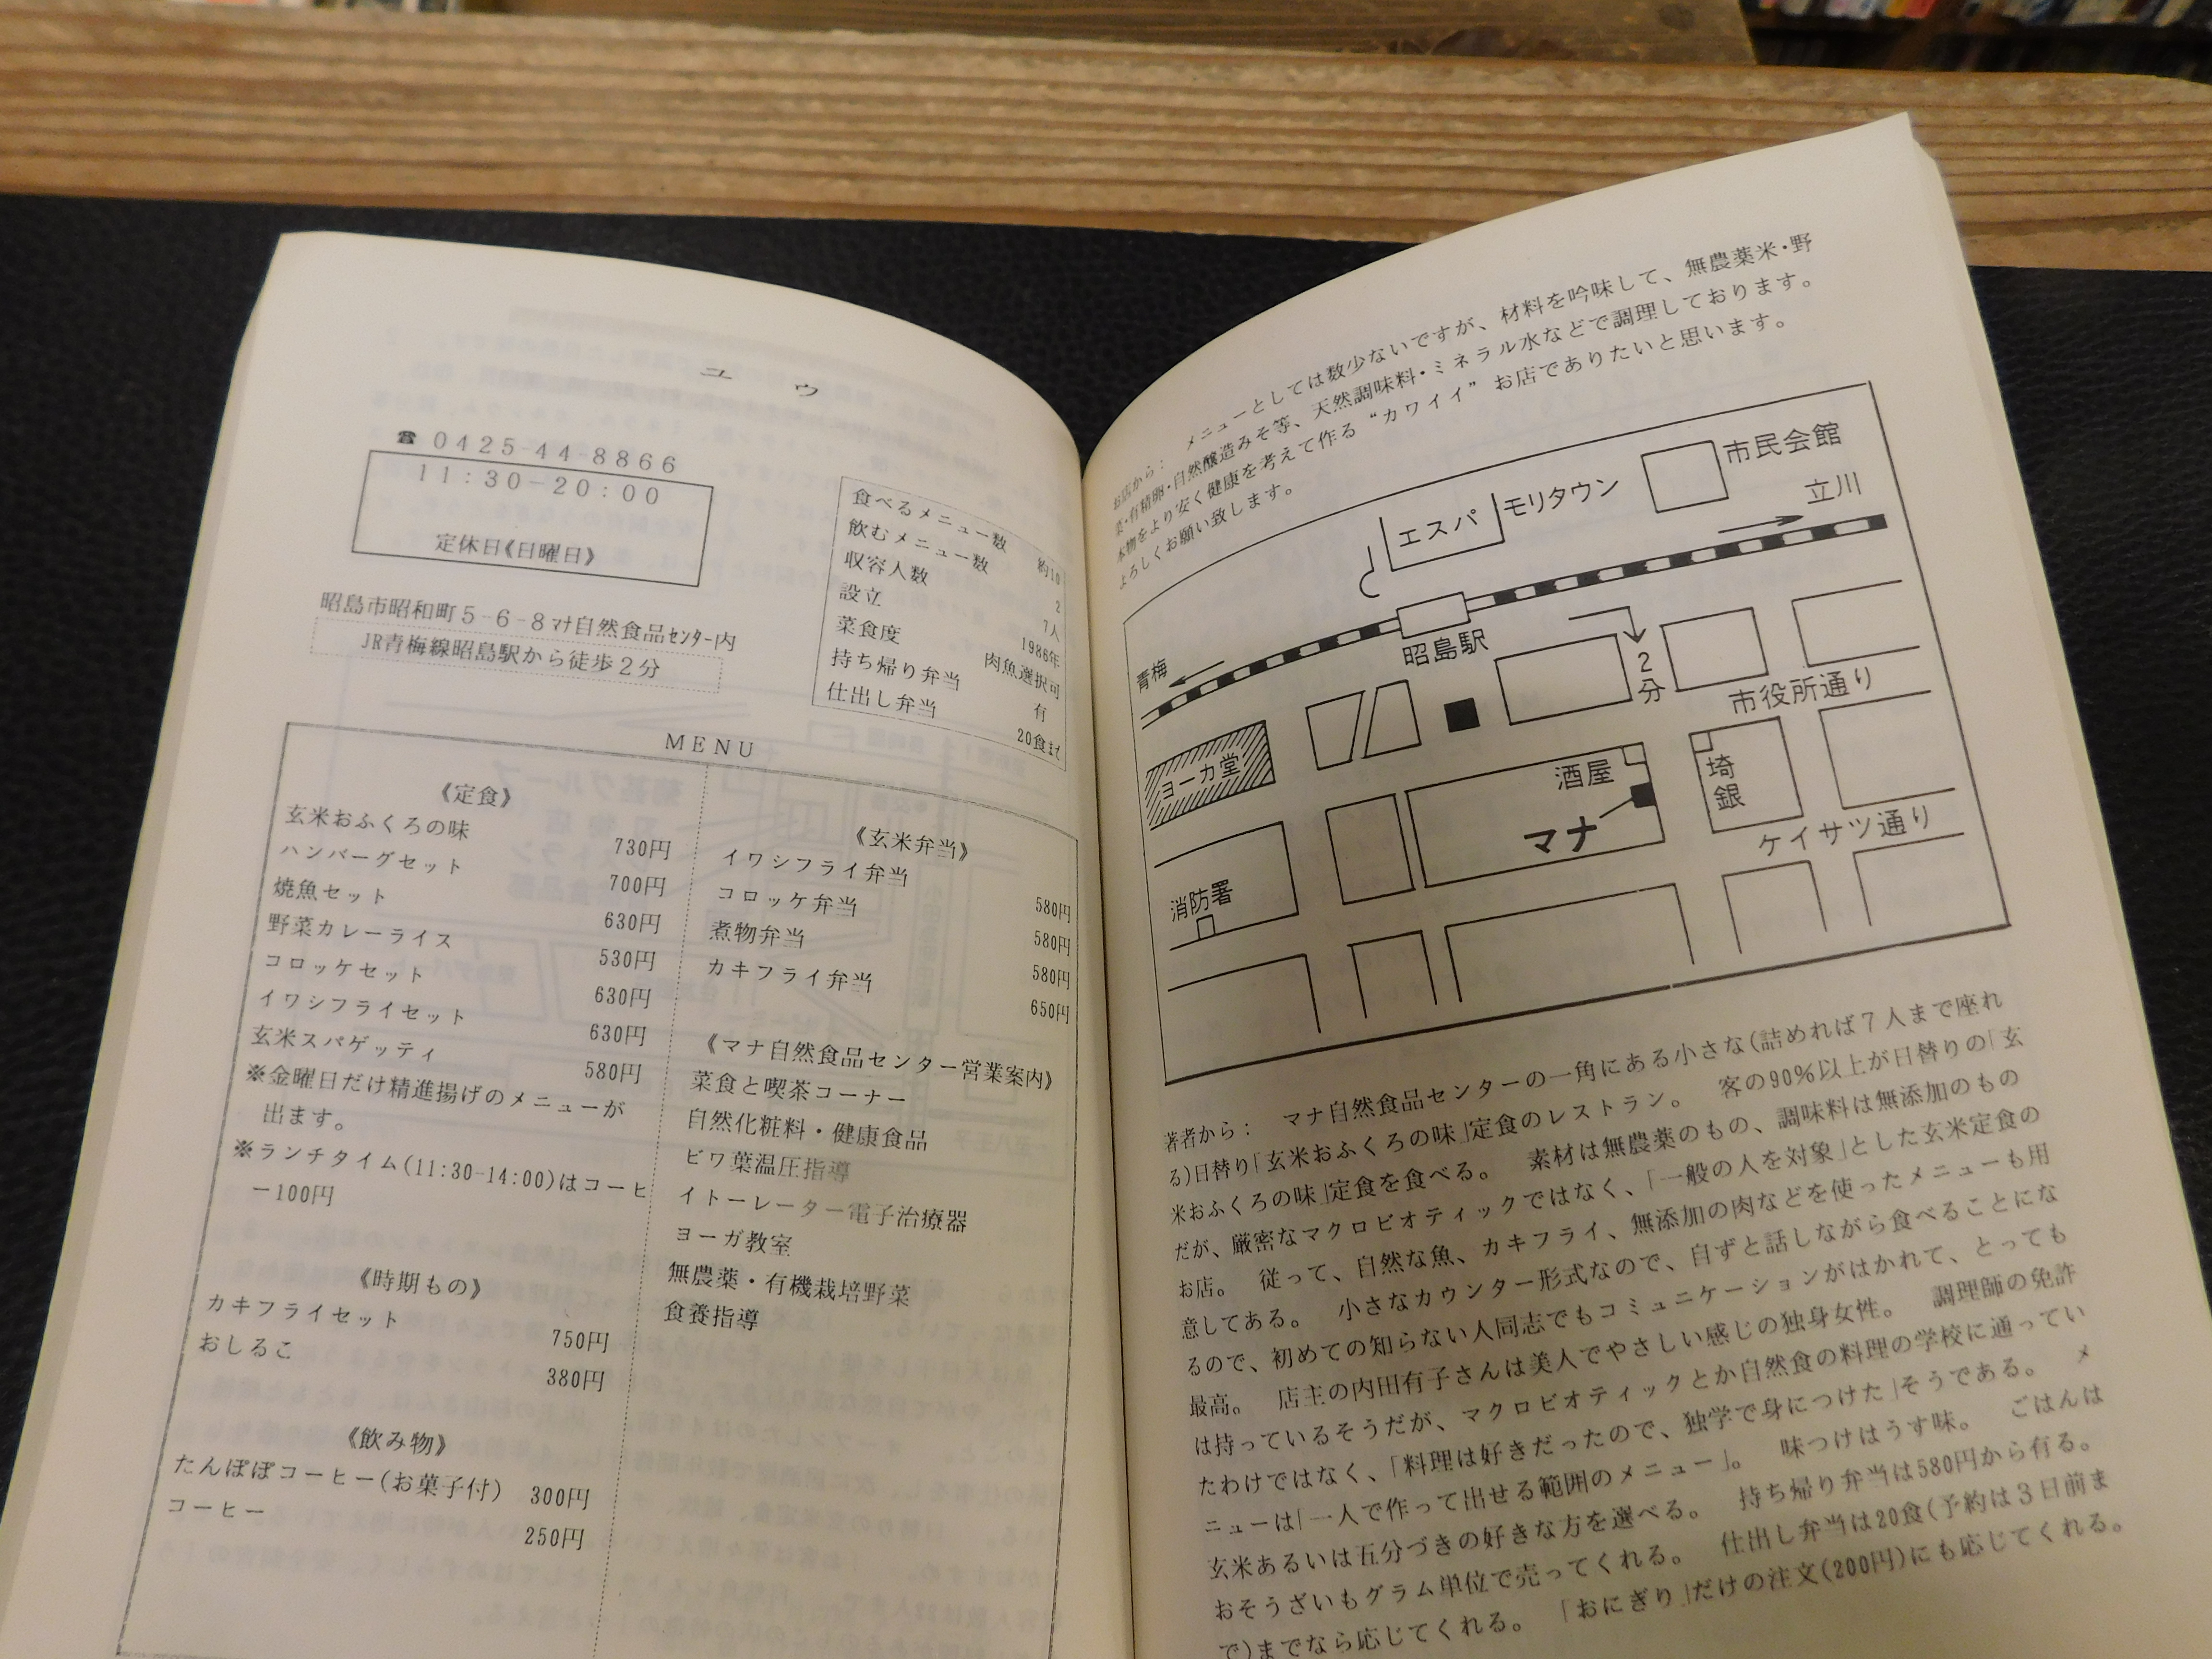 ユウ
☎ 0425-44-8866
11:30-20:00
定休日《日曜日》
昭島市昭和町5-6-8マナ自然食品センター内
JR青梅線昭島駅から徒歩2分
食べるメニュー数 約10
飲むメニュー数 2
収容人数 7人
設立 1986年
菜食度 肉魚選択可
持ち帰り弁当 有
仕出し弁当 20食まで
MENU
《定食》
玄米おふくろの味 730円
ハンバーグセット 700円
焼魚セット 630円
野菜カレーライス 530円
コロッケセット 630円
イワシフライセット 630円
玄米スパゲッティ 580円
※金曜日だけ精進揚げのメニューが
出ます。
※ランチタイム(11:30-14:00)はコーヒ
ー100円
《時期もの》
カキフライセット 750円
おしるこ 380円
《飲み物》
たんぽぽコーヒー(お菓子付) 300円
コーヒー 250円
《玄米弁当》
イワシフライ弁当 580円
コロッケ弁当 580円
煮物弁当 580円
カキフライ弁当 650円
《マナ自然食品センター営業案内》
菜食と喫茶コーナー
自然化粧料・健康食品
ビワ葉温圧指導
イトーレーター電子治療器
ヨーガ教室
無農薬・有機栽培野菜
食養指導
お店から: メニューとしては数少ないですが、材料を吟味して、無農薬米・野
菜・有精卵・自然醸造みそ等、天然調味料・ミネラル水などで調理しております。
本物をより安く健康を考えて作る“カワイイ”お店でありたいと思います。
よろしくお願い致します。
市民会館
エスパ
モリタウン
立川
昭島駅
青梅
2分
市役所通り
ヨーカ堂
酒屋
埼銀
マナ
ケイサツ通り
消防署
著者から: マナ自然食品センターの一角にある小さな(詰めれば7人まで座れ
る)日替り「玄米おふくろの味」定食のレストラン。 客の90%以上が日替りの「玄
米おふくろの味」定食を食べる。 素材は無農薬のもの、調味料は無添加のもの
だが、厳密なマクロビオティックではなく、「一般の人を対象」とした玄米定食の
お店。 従って、自然な魚、カキフライ、無添加の肉などを使ったメニューも用
意してある。 小さなカウンター形式なので、自ずと話しながら食べることにな
るので、初めての知らない人同志でもコミュニケーションがはかれて、とっても
最高。 店主の内田有子さんは美人でやさしい感じの独身女性。 調理師の免許
は持っているそうだが、マクロビオティックとか自然食の料理の学校に通ってい
たわけではなく、「料理は好きだったので、独学で身につけた」そうである。 メ
ニューは「一人で作って出せる範囲のメニュー」。 味つけはうす味。 ごはんは
玄米あるいは五分づきの好きな方を選べる。 持ち帰り弁当は580円から有る。
おそうざいもグラム単位で売ってくれる。 仕出し弁当は20食(予約は3日前ま
で)までなら応じてくれる。 「おにぎり」だけの注文(200円)にも応じてくれる。